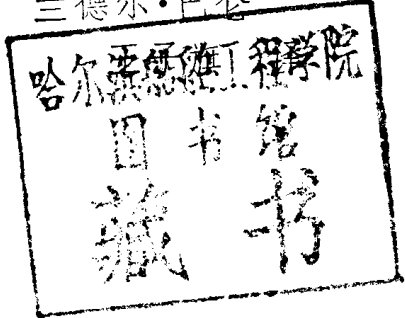 德尔·巴
哈尔滨船舶工程学院
图书馆
藏书